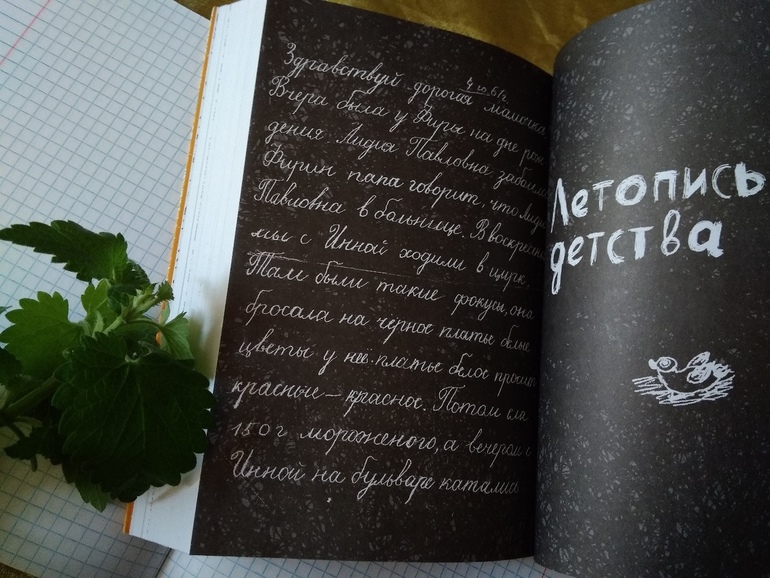 4 ю.61г.
Здравствуй дорогая мамочка
Вчера была у Фиры на дне рож
дения. Лидия Павловна заболела
Фирин папа говорит, что Лидия
Павловна в больнице. В воскресенье
мы с Инной ходили в цирк.
Там были такие фокусы, она
бросала на чёрное платье белые
цветы у неё платье белое просит
красные – красное. Потом ела
150 г мороженого, а вечером с
Инной на бульваре катались
Летопись
детства